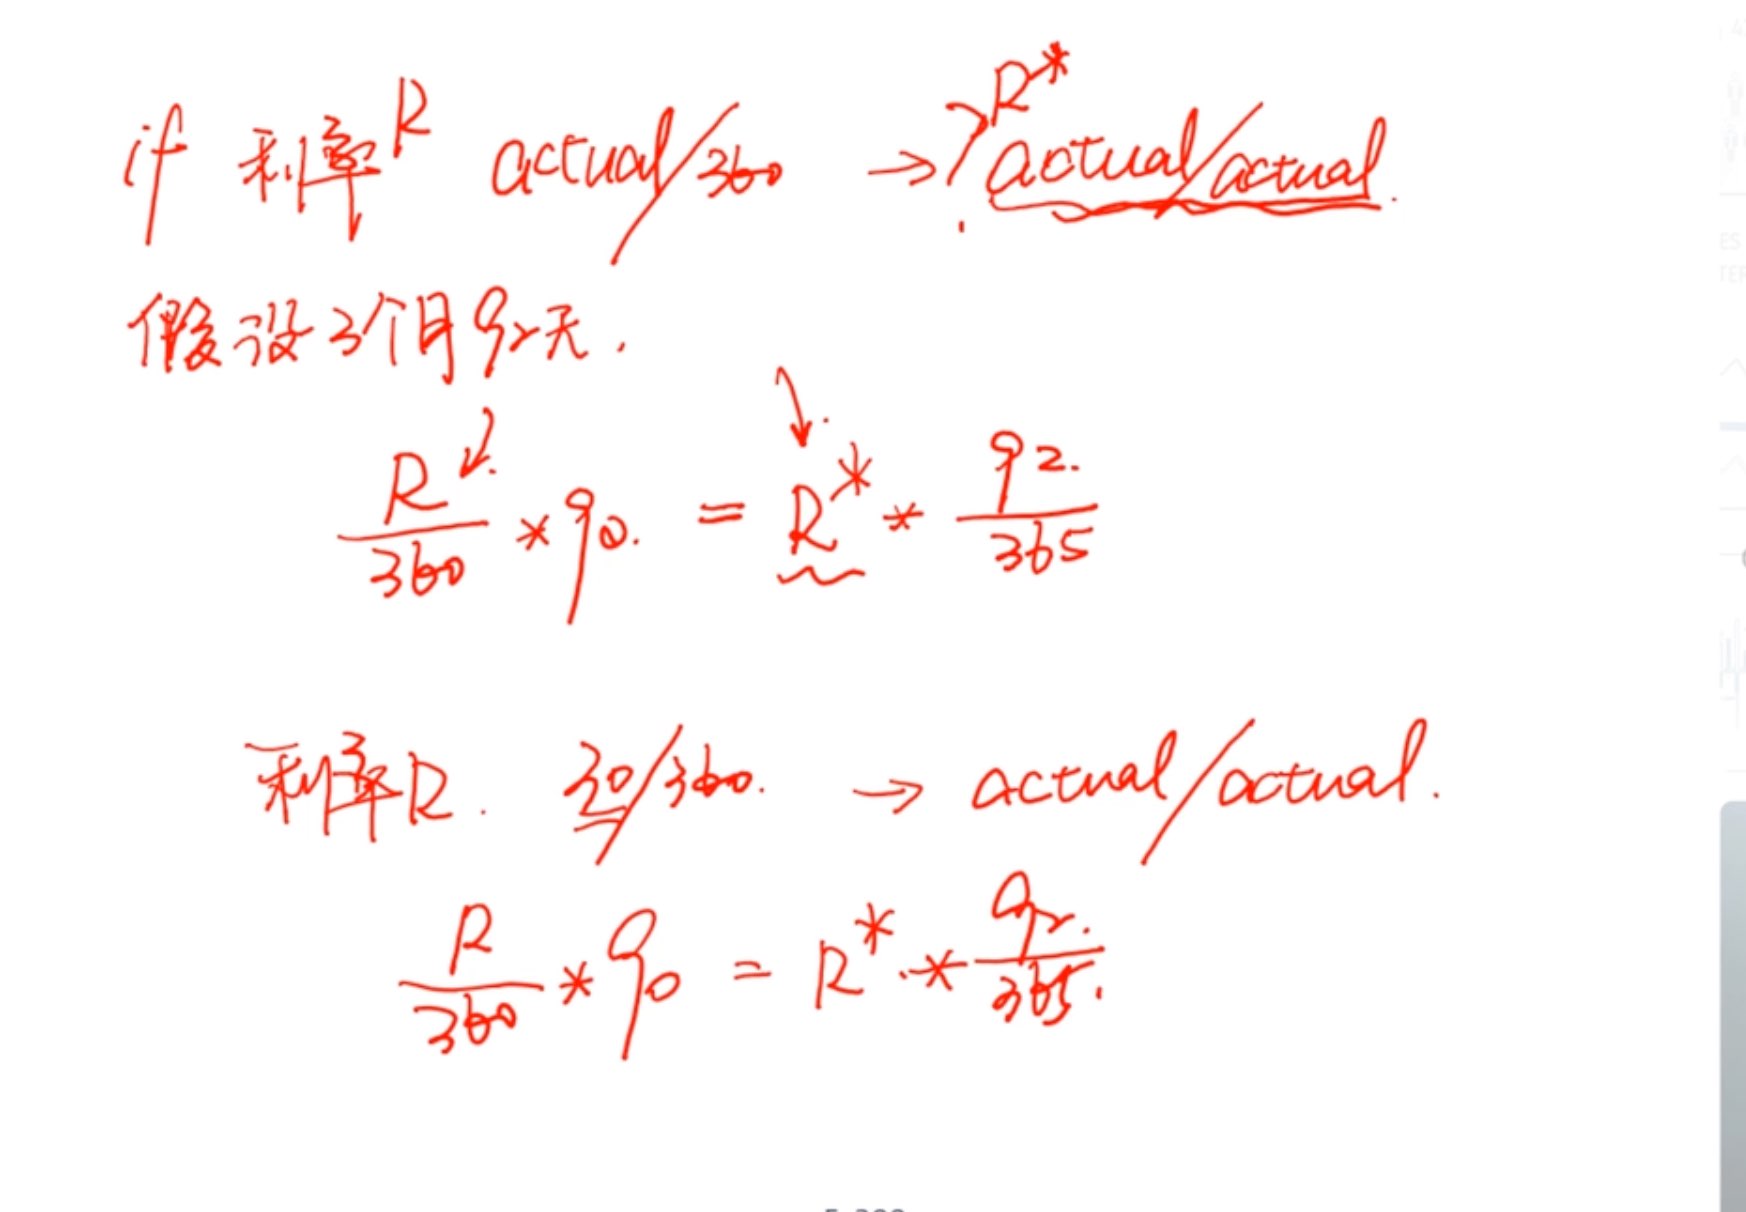 if 利率R actual/360 → ? R* actual/actual.
假设3个月92天.
R/360 * 90. = R* * 92./365
利率R. 30/360. → actual/actual.
R/360 * 90 = R*. * 92./365.